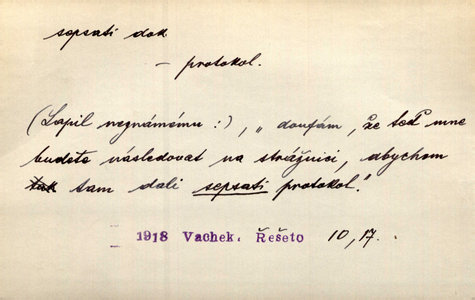 sepsati dok
– protokol.
(Lapil neznámému :), „ doufám, že teď mne
budete následovat na strážnici, abychom
tak tam dali sepsati protokol."
1918 Vachek. Řešeto 10, 17.